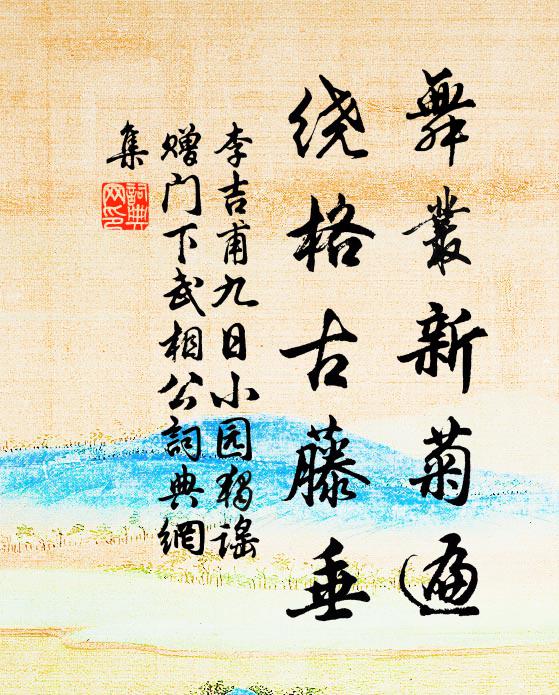 舞叢新菊遍
绕格古藤垂
李吉甫九日小园独謠
赠门下武相公詞典網
集
詞典
网印